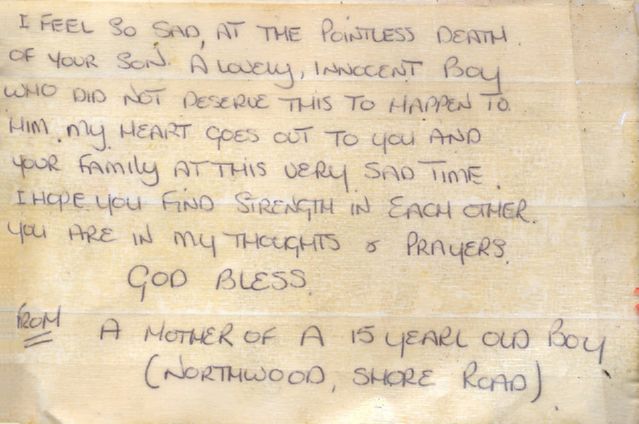 I FEEL SO SAD, AT THE POINTLESS DEATH.
OF YOUR SON. A LOVELY, INNOCENT BOY
WHO DID NOT DESERVE THIS TO HAPPEN TO
HIM. MY HEART GOES OUT TO YOU AND
YOUR FAMILY AT THIS VERY SAD TIME.
I HOPE YOU FIND STRENGTH IN EACH OTHER.
YOU ARE IN MY THOUGHTS & PRAYERS.
GOD BLESS.
FROM A MOTHER OF A 15 YEARL OLD BOY
(NORTHWOOD, SHORE ROAD)